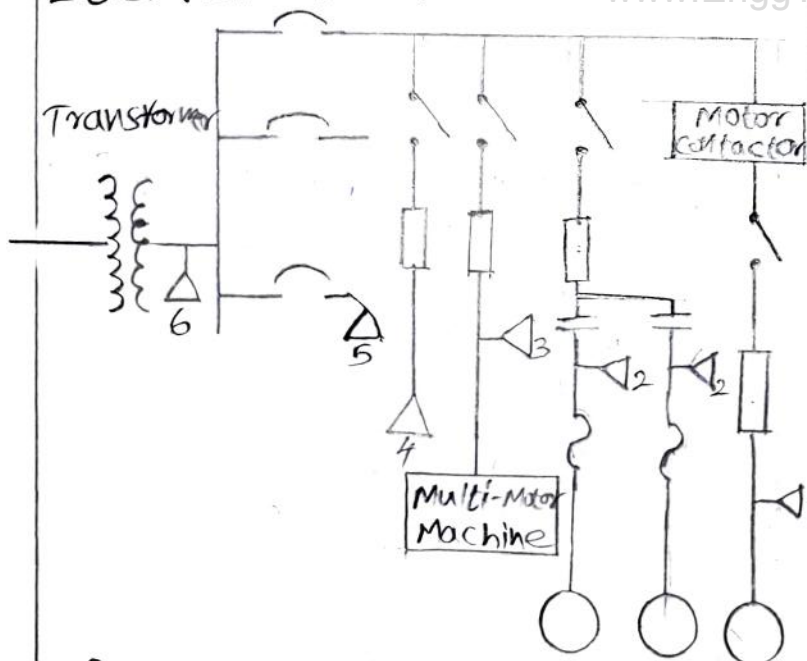 Transformer
Motor
Contactor
6
5
3
2
2
4
Multi-Motor
Machine